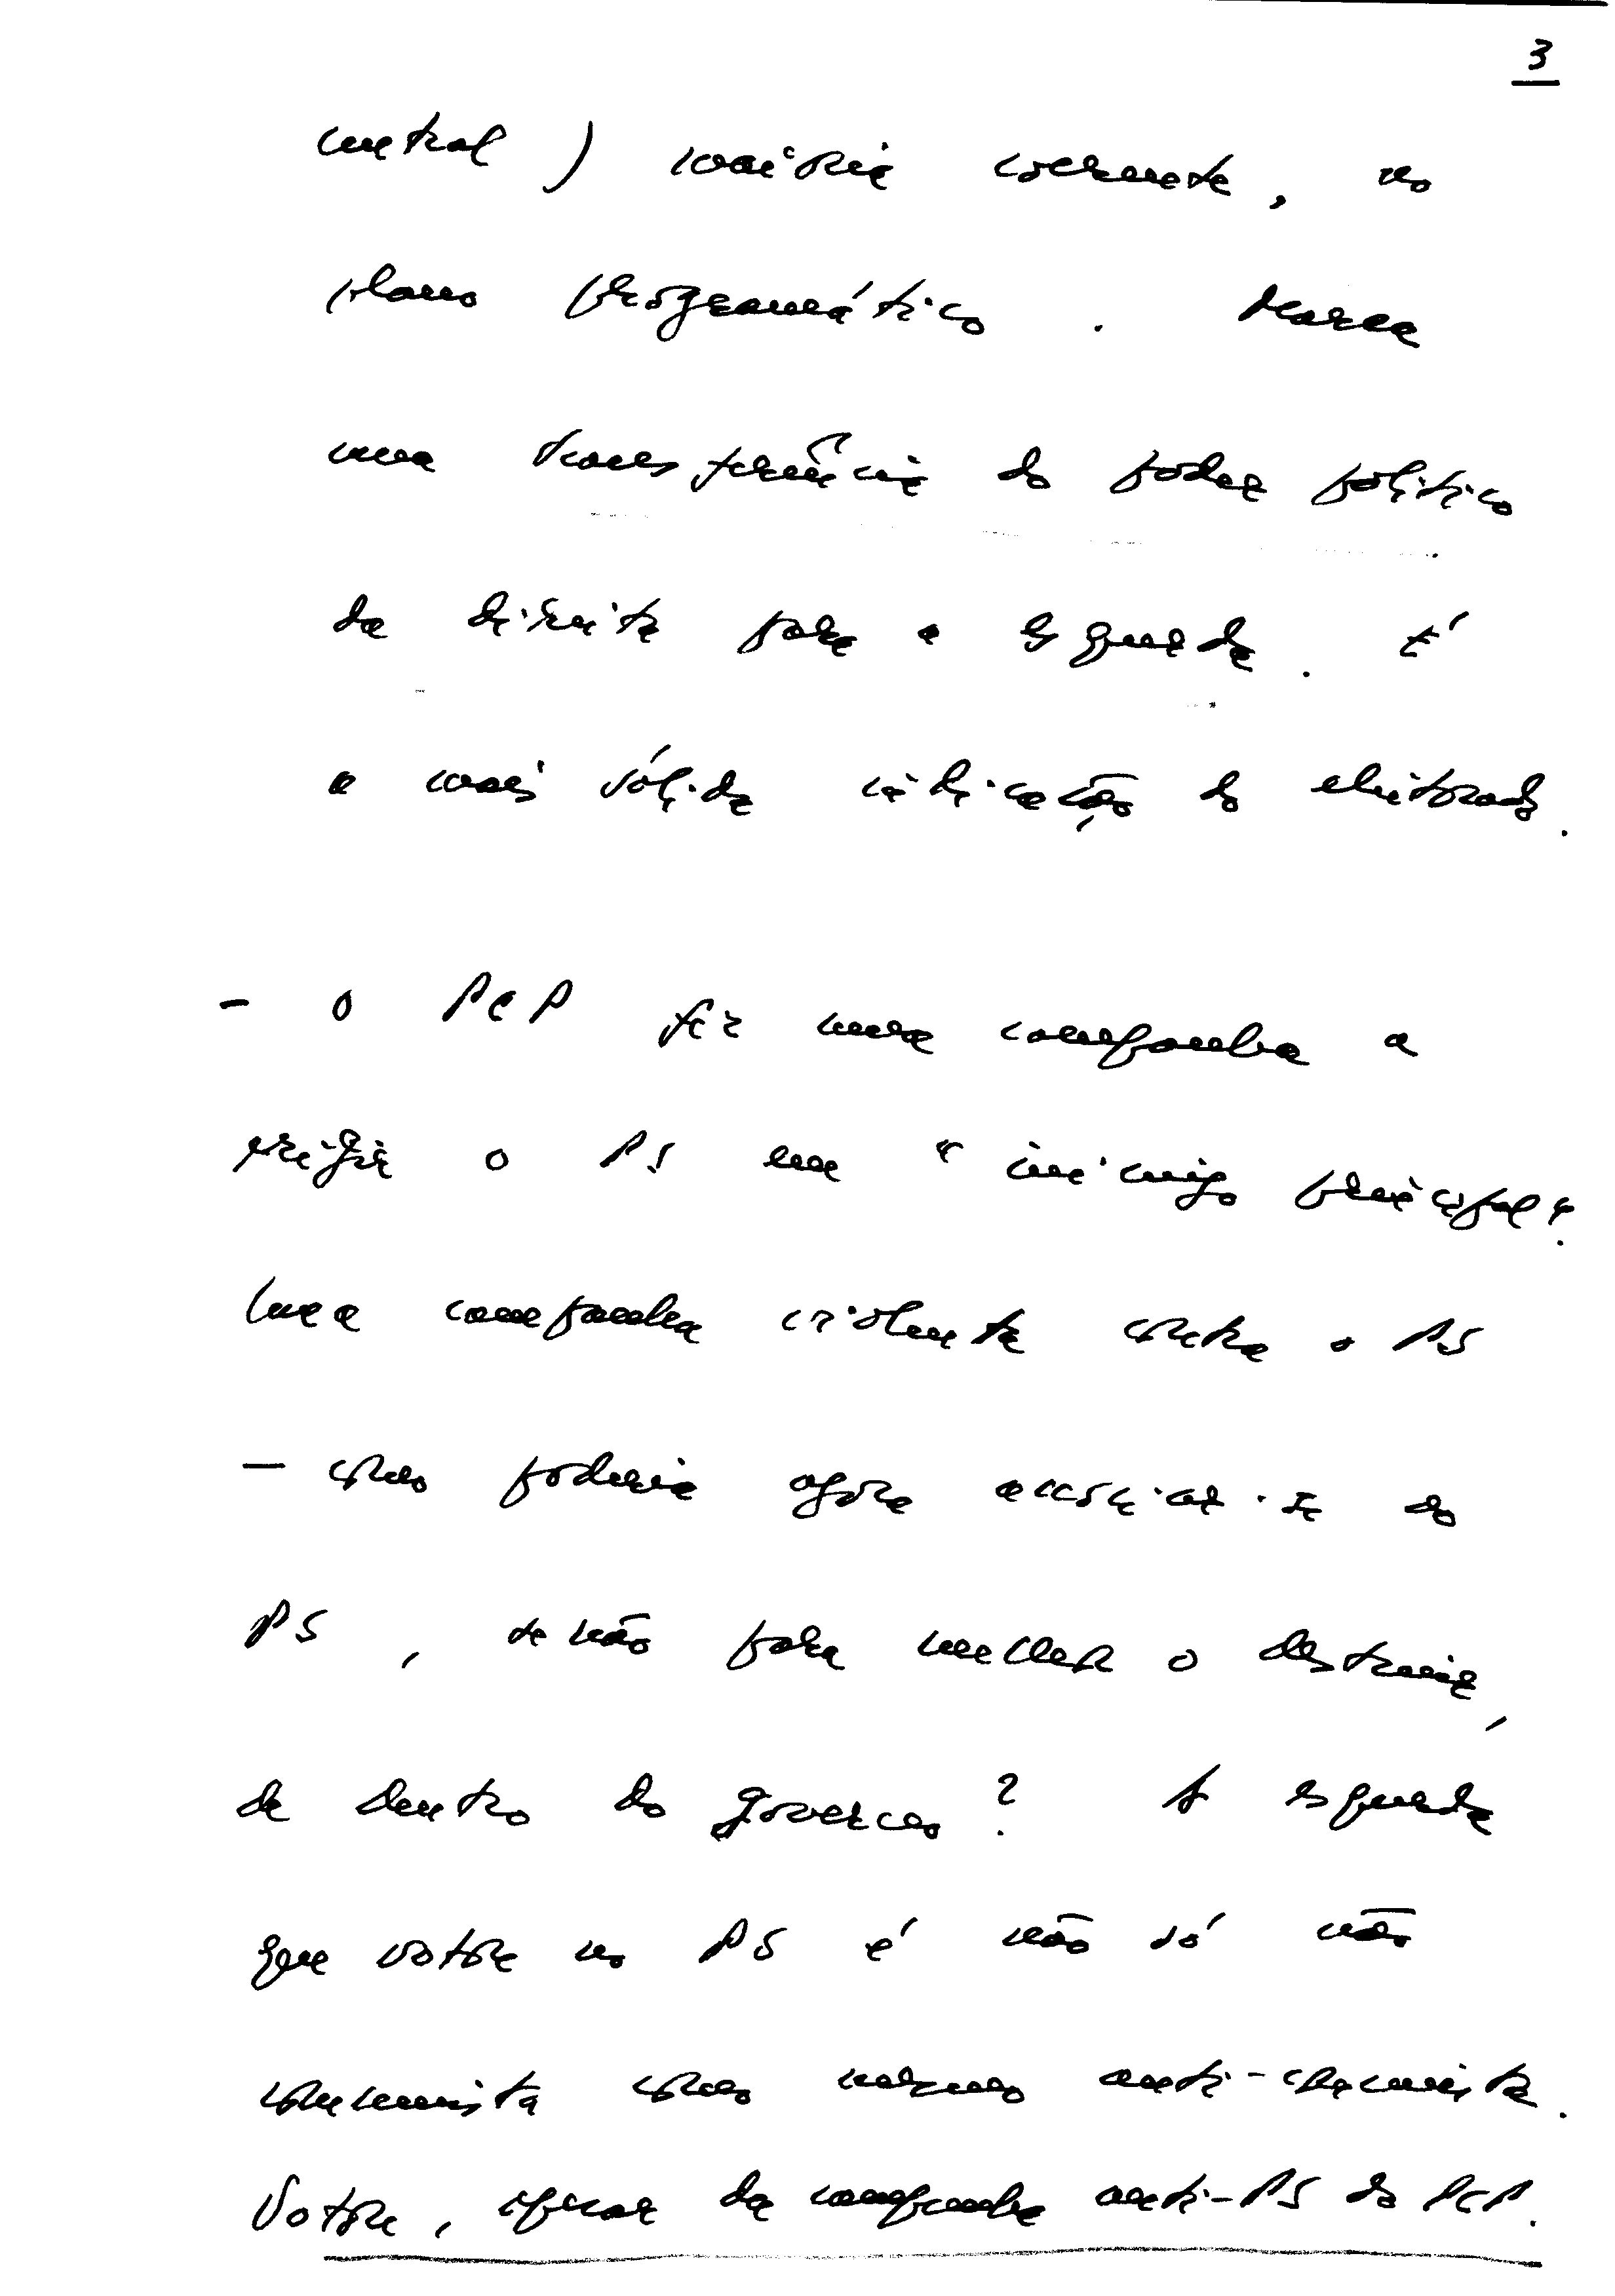 3
central) maioria coerente, no
plano programático. Marca
uma transferência do poder político
da direita para a esquerda. É
a mais sólida indicação do eleitorado.
- O PCP fez uma campanha a
erigir o PS em "inimigo principal".
Uma campanha violenta contra o PS
- como poderia agora associar-se ao
PS, senão para melhor o destruir,
de dentro do governo? A esquerda
que votou no PS é não só não
comunista como mesmo anti-comunista.
Votou, apesar da campanha anti-PS do PCP.